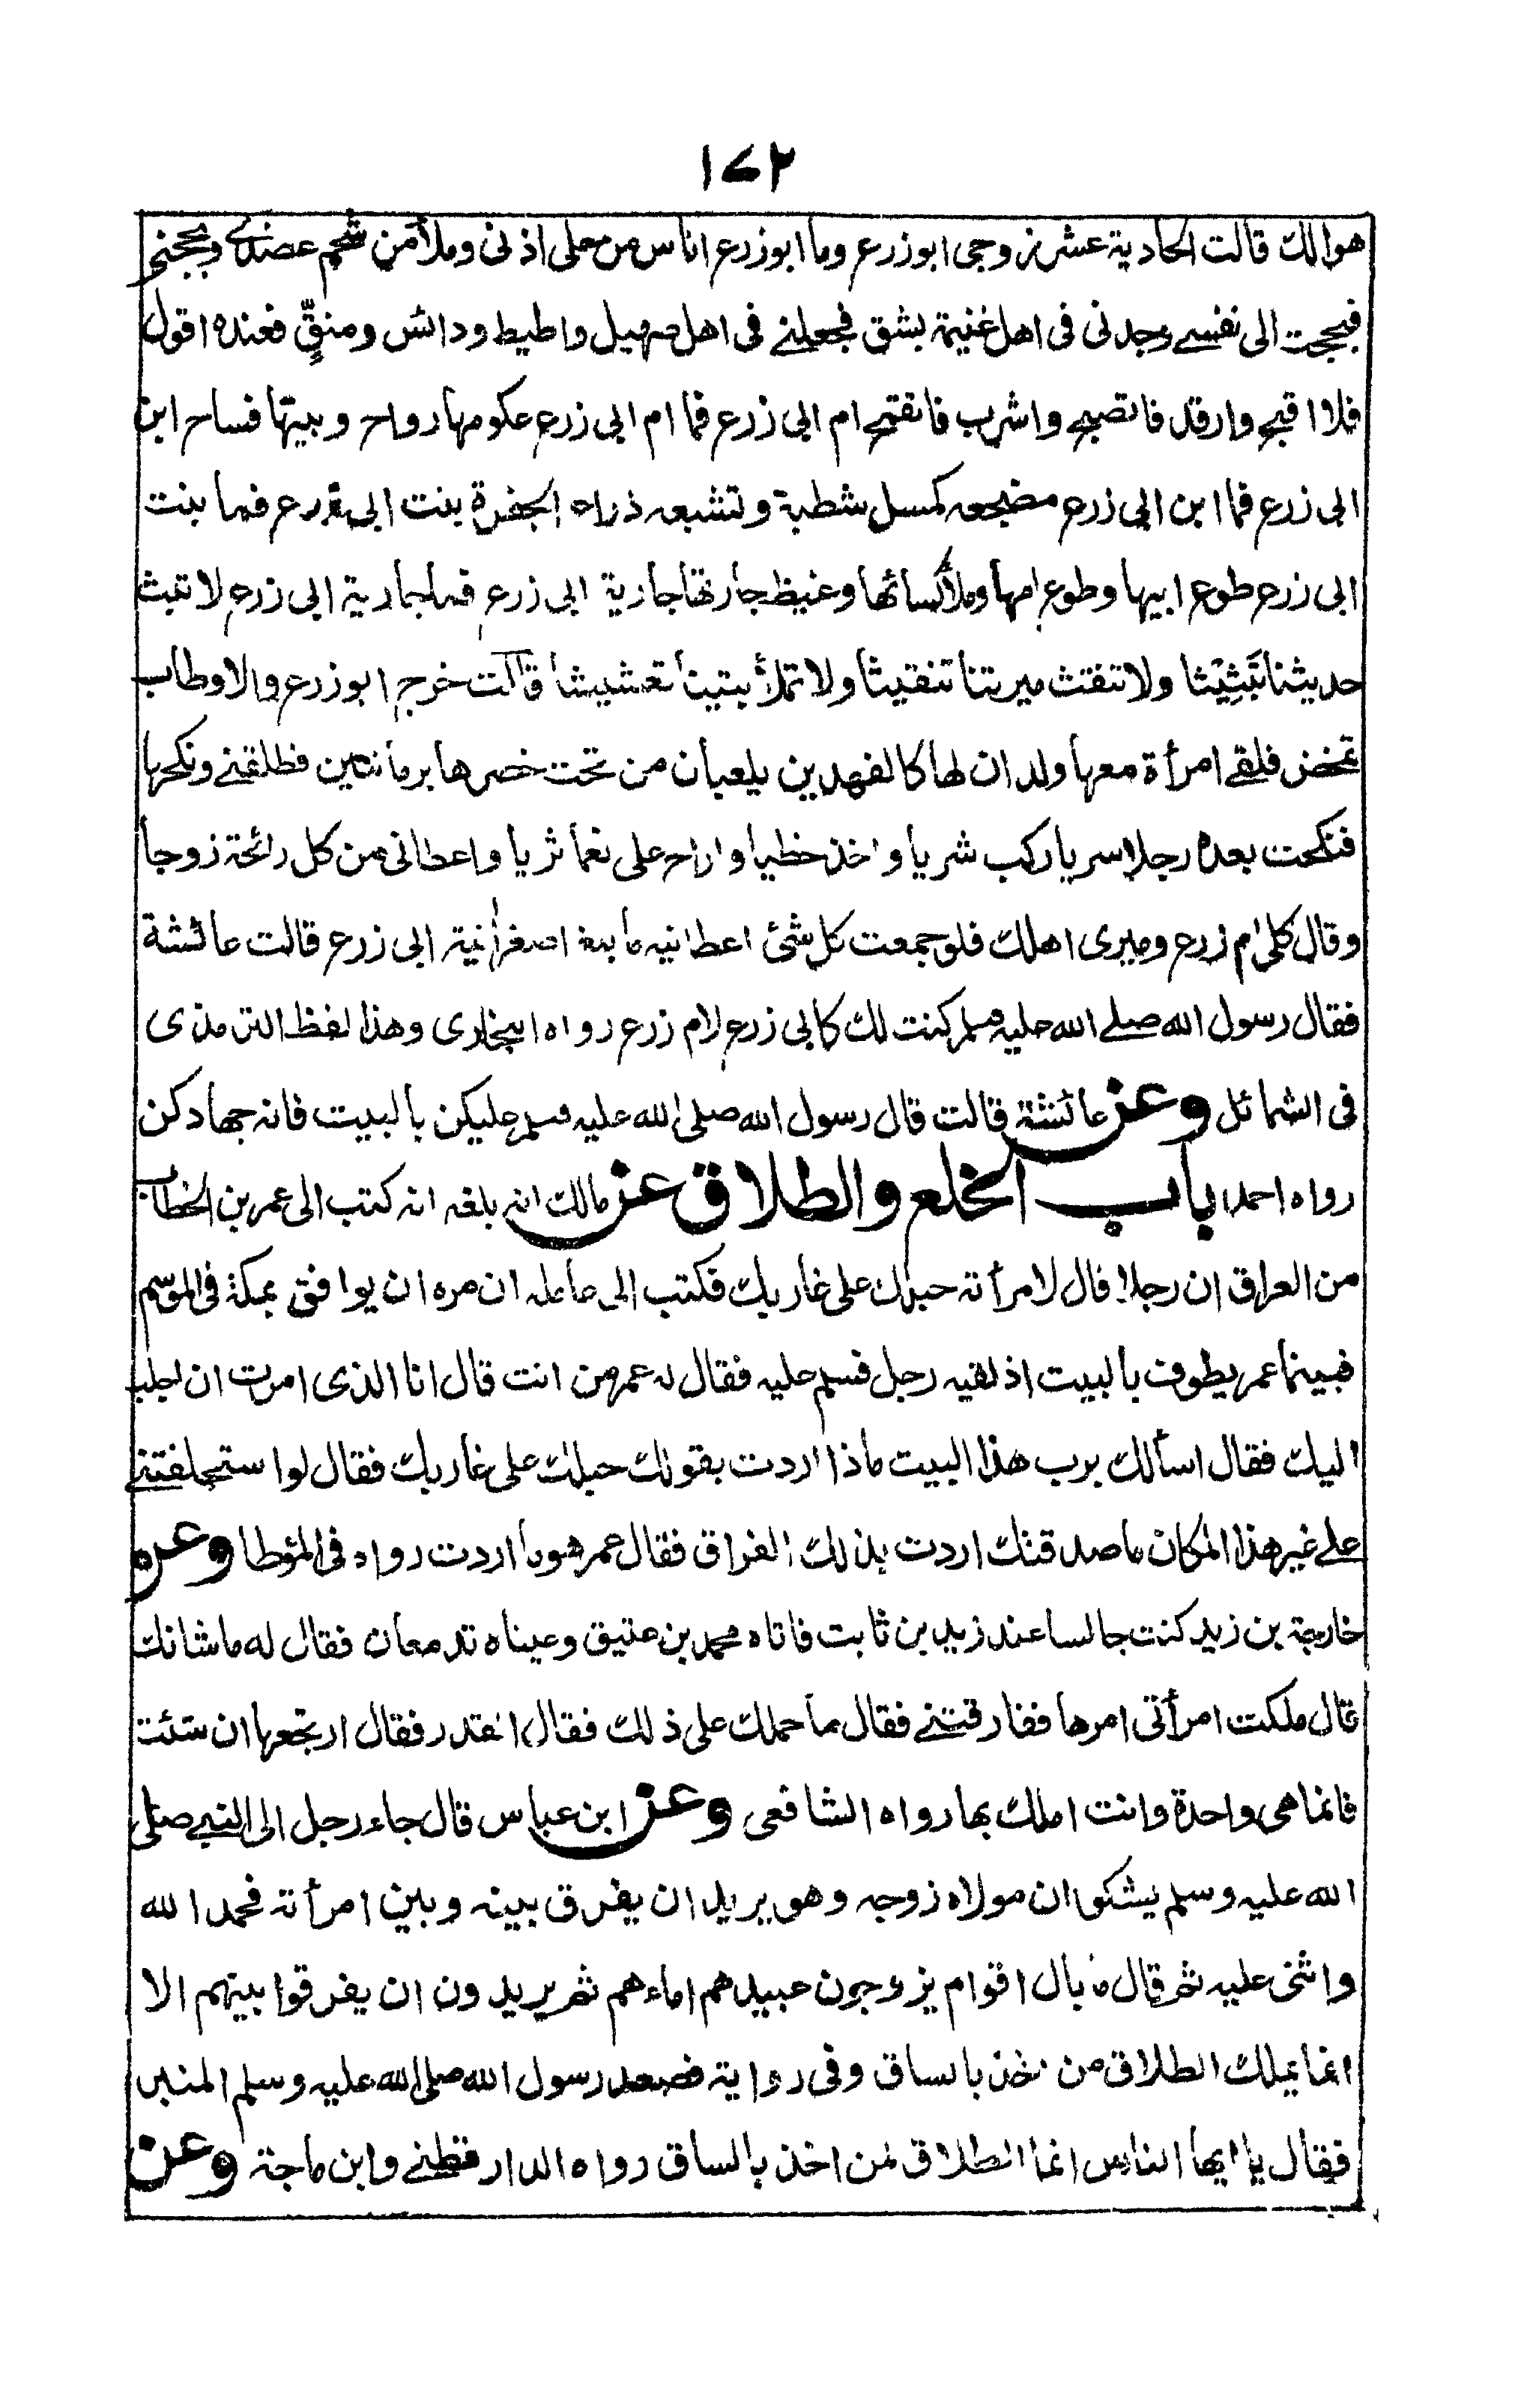 ١٧٢
هوالك قالت الحادية عشر زوجى ابوزرع وما ابوزرع اناس من حلى اذنى وملأ من شحم عضدى وبجحنى
فبجحت الى نفسى وجدنى فى اهل غنيمة بشق فجعلنى فى اهل صهيل واطيط ودائس ومنقٍّ فعنده اقول
فلا اقبح وارقد فاتصبح واشرب فاتقمح ام ابى زرع فما ام ابى زرع عكومها رداح وبيتها فساح ابن
ابى زرع فما ابن ابى زرع مضجعه كمسل شطبة وتشبعه ذراع الجفرة بنت ابى زرع فما بنت
ابى زرع طوع ابيها وطوع امها وملأ كسائها وغيظ جارتها جارية ابى زرع فما جارية ابى زرع لا تبث
حديثنا تَبْثِيْثا ولا تنقث ميرتنا تنقيثا ولا تملأ بيتينا تعشيشا قالت خرج ابوزرع والاوطاب
تمخض فلقى امرأة معها ولدان لها كالفهدين يلعبان من تحت خصرها برمانتين فطلقنى ونكحها
فنكحت بعده رجلا سريا ركب شريا واخذ خطيا واراح على نعما ثريا واعطانى من كل رائحة زوجا
وقال كلى ام زرع وميرى اهلك فلو جمعت كل شئ اعطانيه ما بلغ اصغر اٰنية ابى زرع قالت عائشة
فقال رسول الله صلى الله عليه وسلم كنت لك كابى زرع لام زرع رواه البخارى وهذا لفظ الترمذى
فى الشمائل وعن عائشة قالت قال رسول الله صلى الله عليه وسلم عليكن بالبيت فانه جهادكن
رواه احمد باب الخلع والطلاق عن مالك انه بلغه انه كتب الى عمر بن الخطاب
من العراق ان رجلا قال لامرأته حبلك على غاربك فكتب الى عامله ان مره ان يوافق بمكة فى الموسم
فبينما عمر يطوف بالبيت اذ لقيه رجل فسلم عليه فقال له عمر من انت قال انا الذى امرت ان اجلب
اليك فقال اسألك برب هذا البيت ماذا اردت بقولك حبلك على غاربك فقال لو استحلفتنى
على غير هذا المكان ما صدقتك اردت بذلك الفراق فقال عمر هو ما اردت رواه فى المؤطا وعن
خارجة بن زيد كنت جالسا عند زيد بن ثابت فاتاه محمد بن عتيق وعيناه تدمعان فقال له ما شانك
قال ملكت امرأتى امرها ففارقتنى فقال ما حملك على ذلك فقال القدر فقال ارتجعها ان شئت
فانما هى واحدة وانت املك بها رواه الشافعى وعن ابن عباس قال جاء رجل الى النبى صلى
الله عليه وسلم يشكو ان مولاه زوجه وهو يريد ان يفرق بينه وبين امرأته فحمد الله
واثنى عليه ثم قال ما بال اقوام يزوجون عبيدهم اماءهم ثم يريدون ان يفرقوا بينهم الا
انما يملك الطلاق من يخذ بالساق وفى رواية فصعد رسول الله صلى الله عليه وسلم المنبر
فقال يا ايها الناس انما الطلاق لمن اخذ بالساق رواه الدارقطنى وابن ماجة وعن